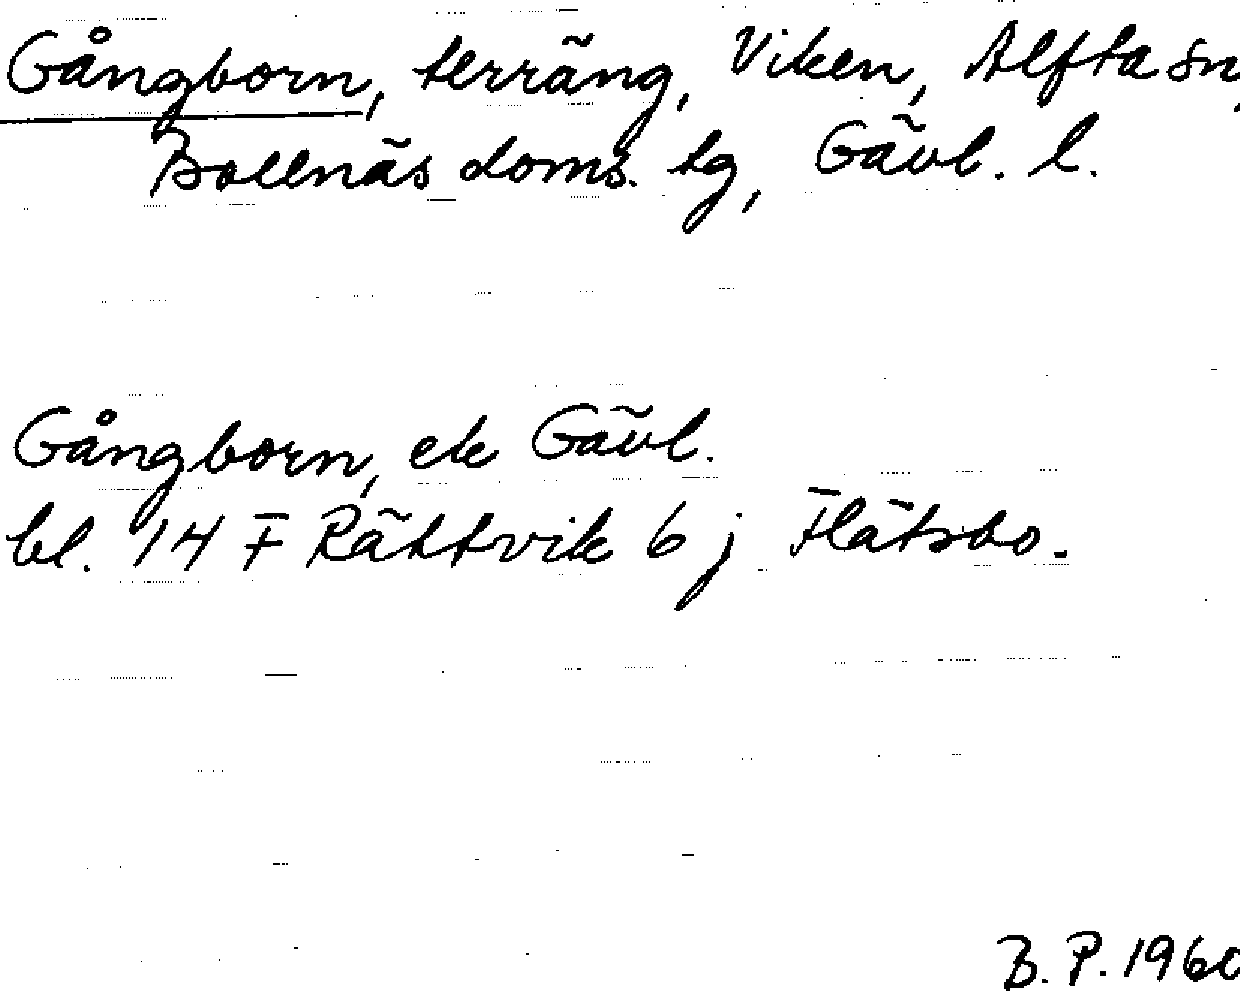 Gångborn, terräng, Viken, Alfta sn,
Bollnäs doms. tg, Gävl. l.
Gångborn, ek Gävl.
bl. 14 F Rättvik 6 j Flätsbo.
B. P. 1960